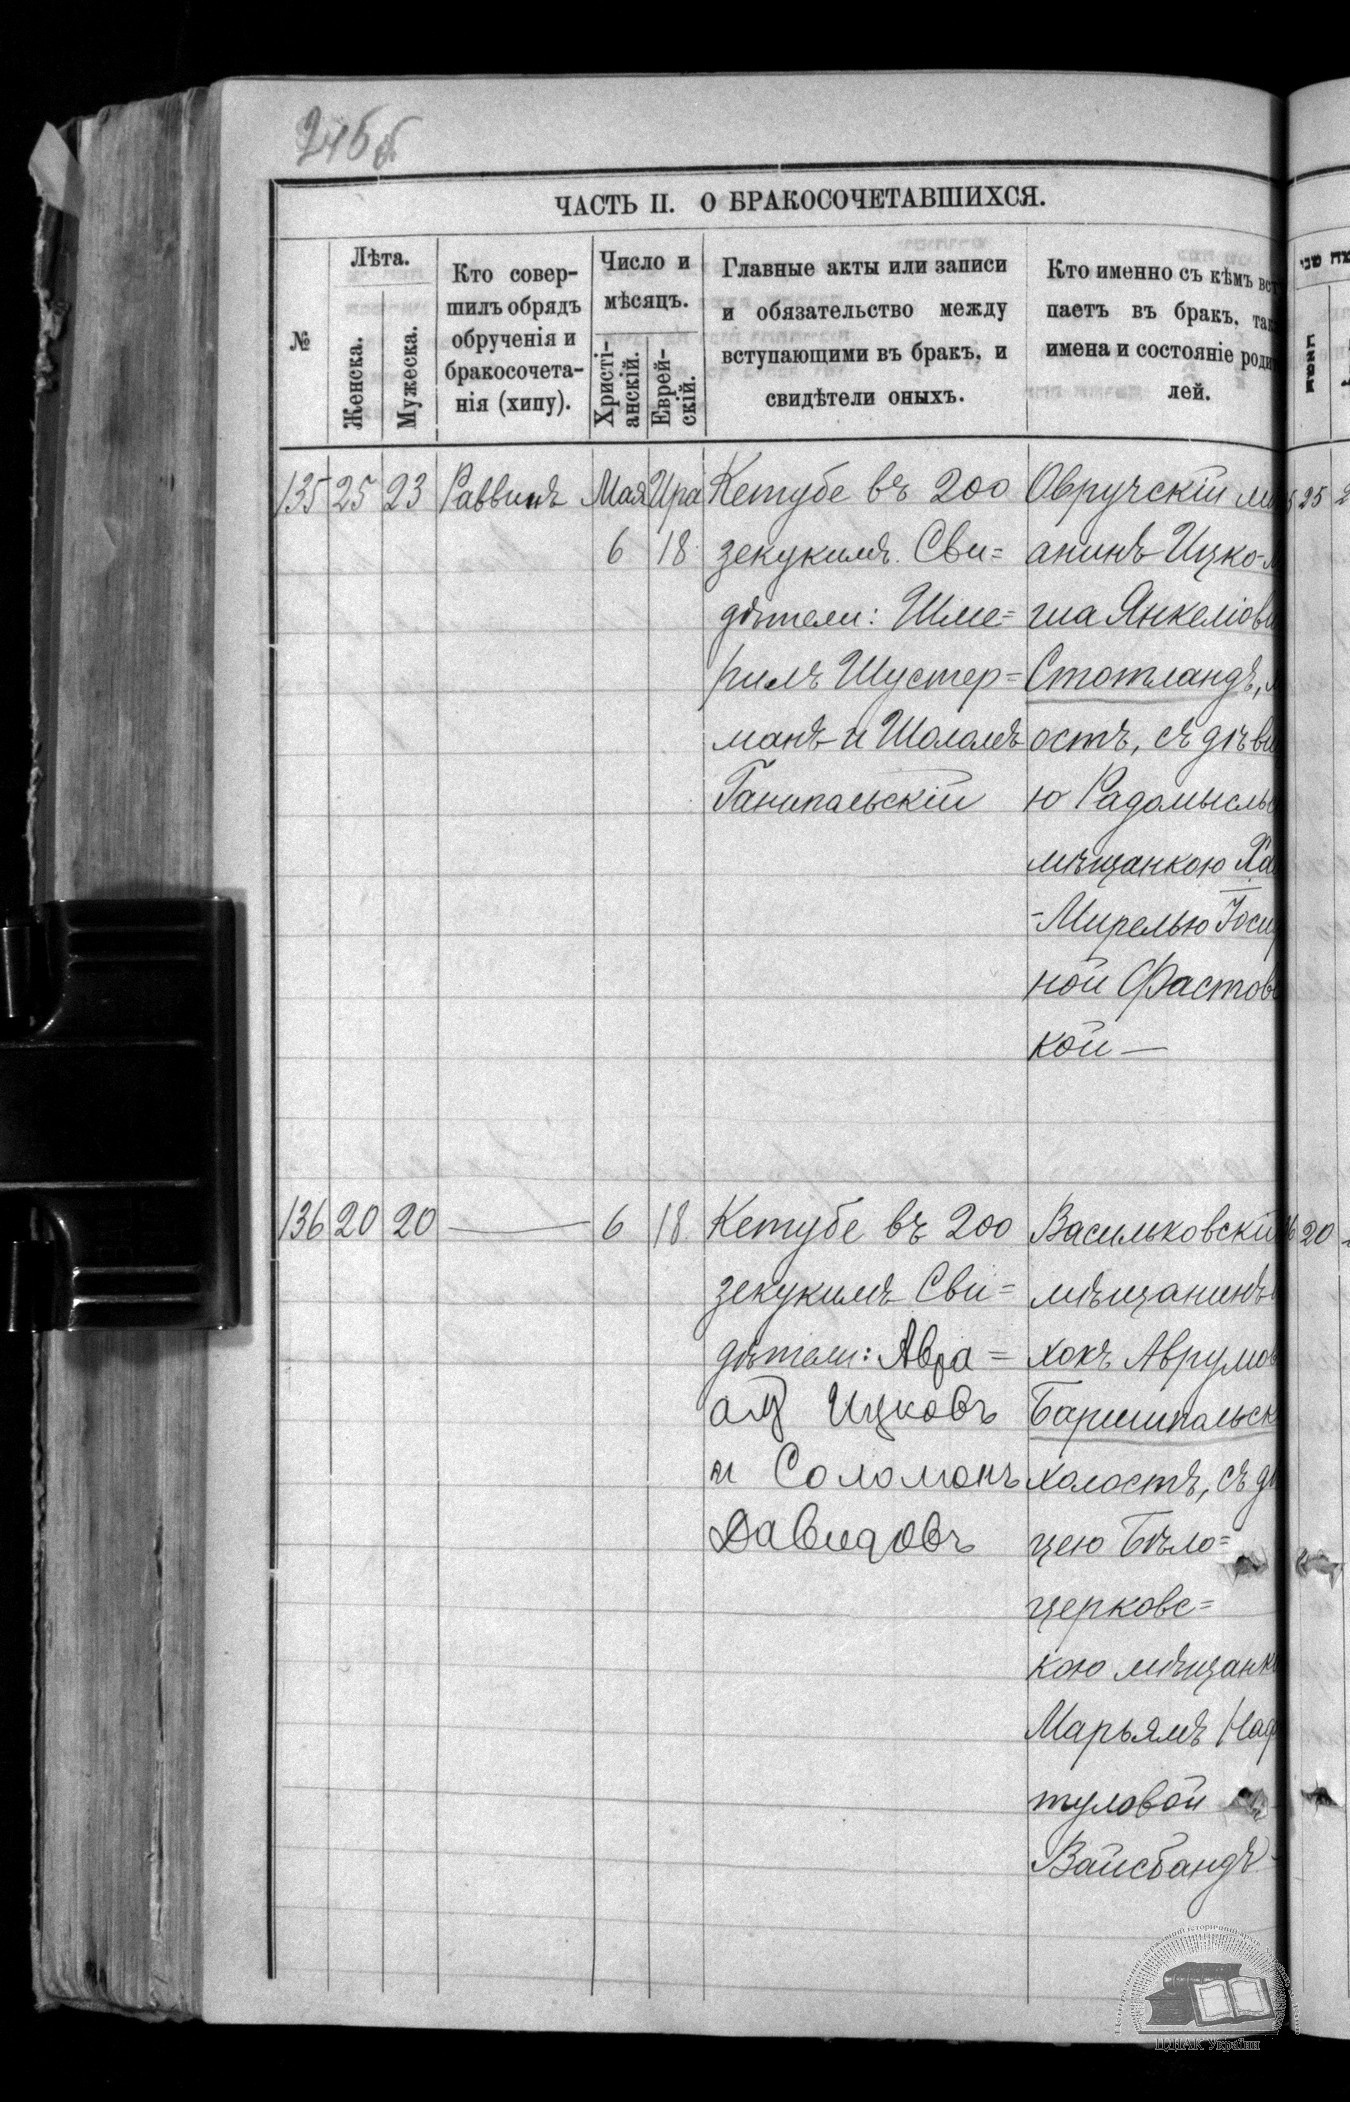 ЧАСТЬ II. О БРАКОСОЧЕТАВШИХСЯ.
№
Лѣта.
Женска.
Мужеска.
Кто совер-
шилъ обрядъ
обрученія и
бракосочета-
нія (хипу).
Число и
мѣсяцъ.
Христі-
анскій.
Еврей-
скій.
Главные акты или записи
и обязательство между
вступающими въ бракъ, и
свидѣтели оныхъ.
Кто именно съ кѣмъ вст
паетъ въ бракъ, так
имена и состояніе роди
лей.
135 25 23 Раввинъ Мая Ира
6 18
Кетубе въ 200
зекукимъ. Сви=
дѣтели: Шме=
рилъ Шустер=
манъ и Шоломъ
Ганипольскій
Овручскій мѣ
анинъ Ицко-М
Янкеліови
Стотландъ,
остъ, съ дѣви
ю Радомысльс
мѣщанкою Ха
-Мирелью Іоси
ной Фастовс
кой —
136 20 20 — 6 18
Кетубе въ 200
зекукимъ Сви=
дѣтели: Авра=
амъ Ицковъ
и Соломонъ
Давидовъ
Васильковскій
мѣщанинъ
хокъ Аврумов
Баришпольск
холостъ, съ дѣ
цею Бѣло=
церковс=
кою мѣщанк
Марьямъ Наф
туловой
Вайсбандъ
25
20
ЦДІАК України